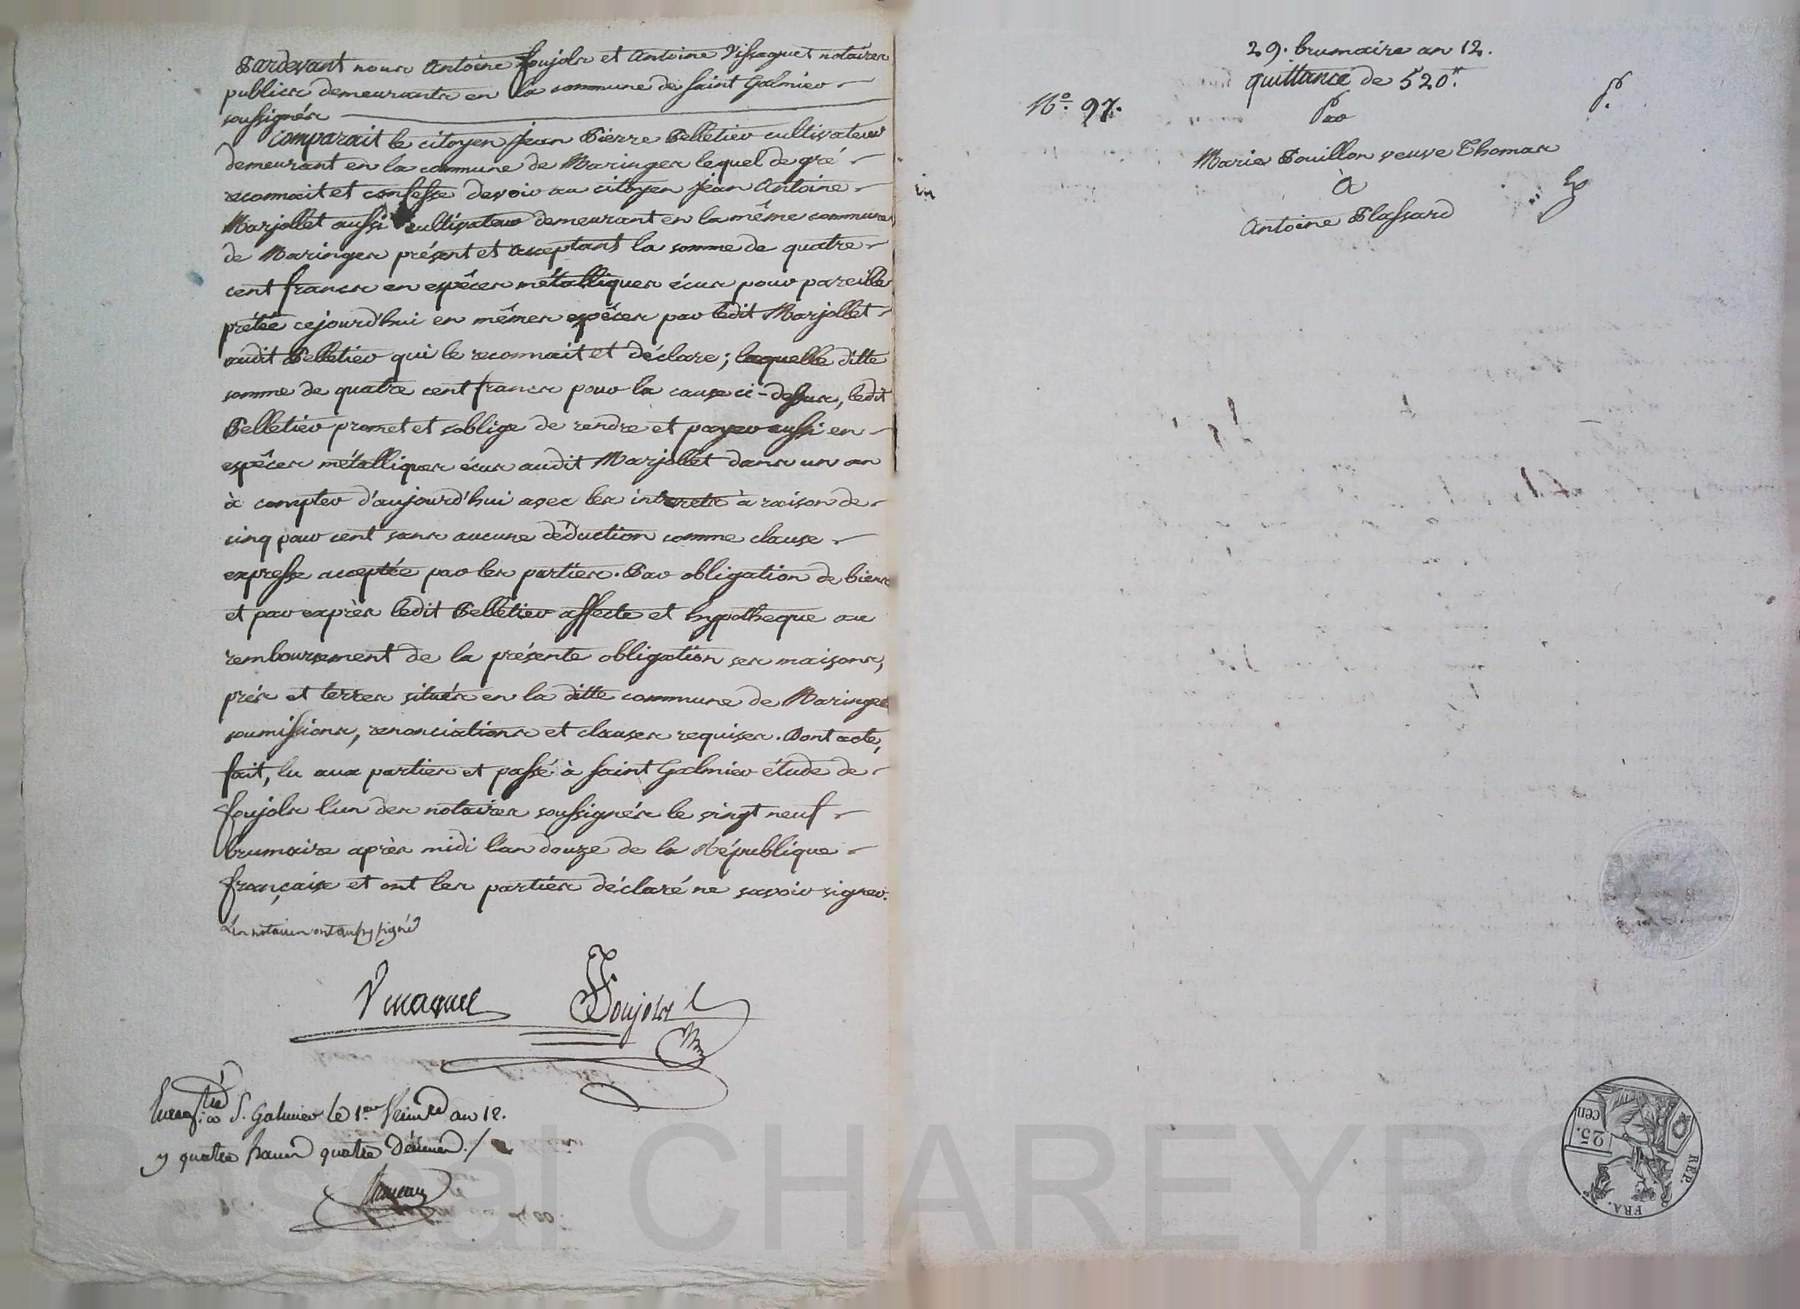 Pardevant nous Antoine Foujols et Antoine Vissaguet notaires
publics demeurants en la commune de saint Galmier
soussignés
comparait le citoyen Jean Pierre Pelletier cultivateur
demeurant en la commune de Maringes lequel de gré
reconnait et confesse devoir au citoyen Jean Antoine
Marjollet aussi cultivateur demeurant en la même commune
de Maringes présent et acceptant la somme de quatre
cent francs en espêces métalliques écus pour pareille
prétée cejourd'hui en mêmes espêces par ledit Marjollet
audit Pelletier qui le reconnait et déclare; laquelle ditte
somme de quatre cent francs pour la cause ci-dessus, ledit
Pelletier promet et s'oblige de rendre et payer aussi en
espêces métalliques écus audit Marjollet dans un an
à compter d'aujourd'hui avec les interets à raison de
cinq pour cent sans aucune déduction comme clause
expresse acceptée par les parties. Par obligation de biens
et par exprès ledit Pelletier affecte et hypotheque au
remboursement de la présente obligation ses maisons,
prés et terres situés en la ditte commune de Maringes
soumissions, renonciations et clauses requises. Dont acte,
fait, lu aux parties et passé à saint Galmier étude de
Foujols l'un des notaires soussignés le vingt neuf
brumaire après midi l'an douze de la République
française et ont les parties déclaré ne savoir signer.
Les notaires ont aussy signé
Vissaguet Foujols
Enregistré à S. Galmier le 1er frimre an 12.
y quatre francs quatre décimes
29. brumaire an 12.
quittance de 520.
N.º 97.
Par
Marie Pouillon veuve Thomas
à
Antoine Plassard
REP. FRA.
25. cen
Pascal CHAREYRON